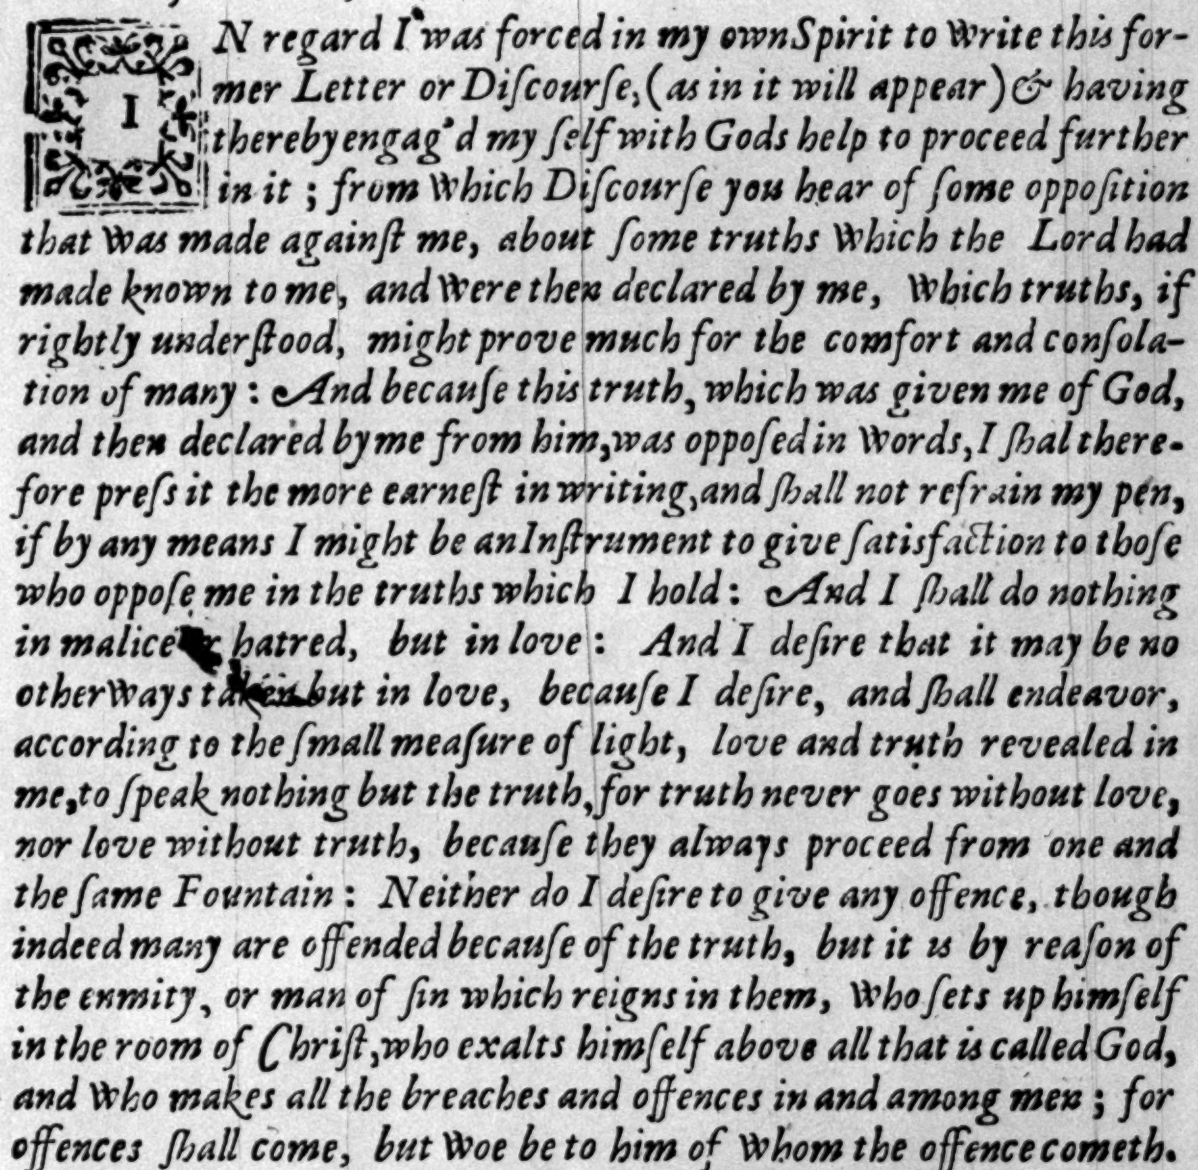 IN regard I was forced in my own Spirit to Write this for-
mer Letter or Diſcourſe, (as in it will appear) & having
thereby engag'd my ſelf with Gods help to proceed further
in it ; from Which Diſcourſe you hear of ſome oppoſition
that Was made againſt me, about ſome truths Which the Lord had
made known to me, and Were then declared by me, Which truths, if
rightly underſtood, might prove much for the comfort and conſola-
tion of many : And becauſe this truth, which was given me of God,
and then declared by me from him, was oppoſed in Words, I ſhal there-
fore preſs it the more earneſt in writing, and ſhall not refrain my pen,
if by any means I might be an Inſtrument to give ſatisfaction to thoſe
who oppoſe me in the truths which I hold : And I ſhall do nothing
in malice hatred, but in love : And I deſire that it may be no
otherWays taken but in love, becauſe I deſire, and ſhall endeavor,
according to the ſmall meaſure of light, love and truth revealed in
me, to ſpeak nothing but the truth, for truth never goes without love,
nor love without truth, becauſe they always proceed from one and
the ſame Fountain : Neither do I deſire to give any offence, though
indeed many are offended becauſe of the truth, but it is by reaſon of
the enmity, or man of ſin which reigns in them, Who ſets up himſelf
in the room of Chriſt, who exalts himſelf above all that is called God,
and Who makes all the breaches and offences in and among men ; for
offences ſhall come, but Woe be to him of Whom the offence cometh.